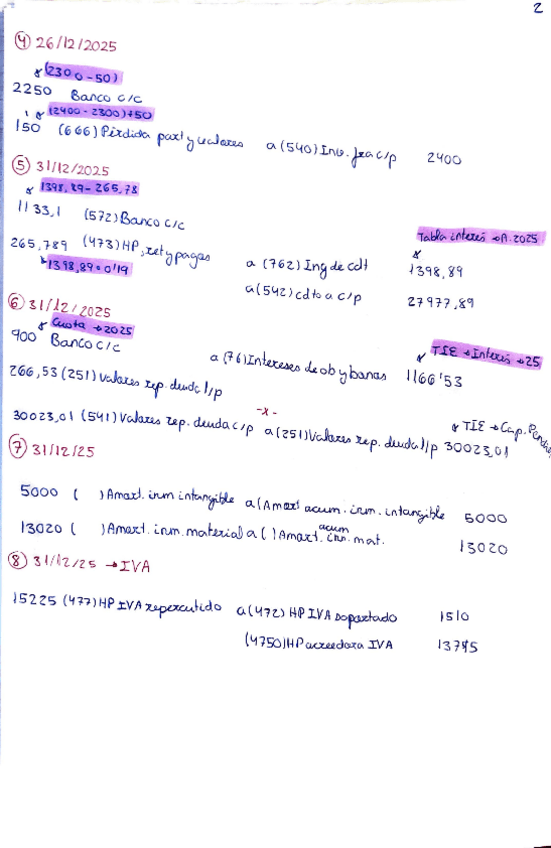 2
④ 26/12/2025
(2300-50)
2250 Banco c/c
(2400-2300)+50
150 (666) Pérdida part y valores a (540) Inv. fra c/p 2400
⑤ 31/12/2025
1398,89-265,78
1133,1 (572) Banco c/c
Tabla interés → A. 2025
265,789 (473) HP, ret y pagas a (762) Ing de cdt 1398,89
1398,89×0'19
a (542) cdto a c/p 27977,89
⑥ 31/12/2025
Cuota → 2025
900 Banco c/c
TIE → Interés → 25
a (76) Intereses de ob y banas 1166'53
266,53 (251) Valores rep. deuda l/p
-x-
TIE → Cap. Pendie
30023,01 (541) Valores rep. deuda c/p a (251) Valores rep. deuda l/p 30023,01
⑦ 31/12/25
5000 ( ) Amort. inm intangible a (Amort acum. inm. intangible 5000
13020 ( ) Amort. inm. material a ( ) Amort. acum inm. mat. 13020
⑧ 31/12/25 → IVA
15225 (477) HP IVA repercutido a (472) HP IVA soportado 1510
(4750) HP acreedora IVA 13715